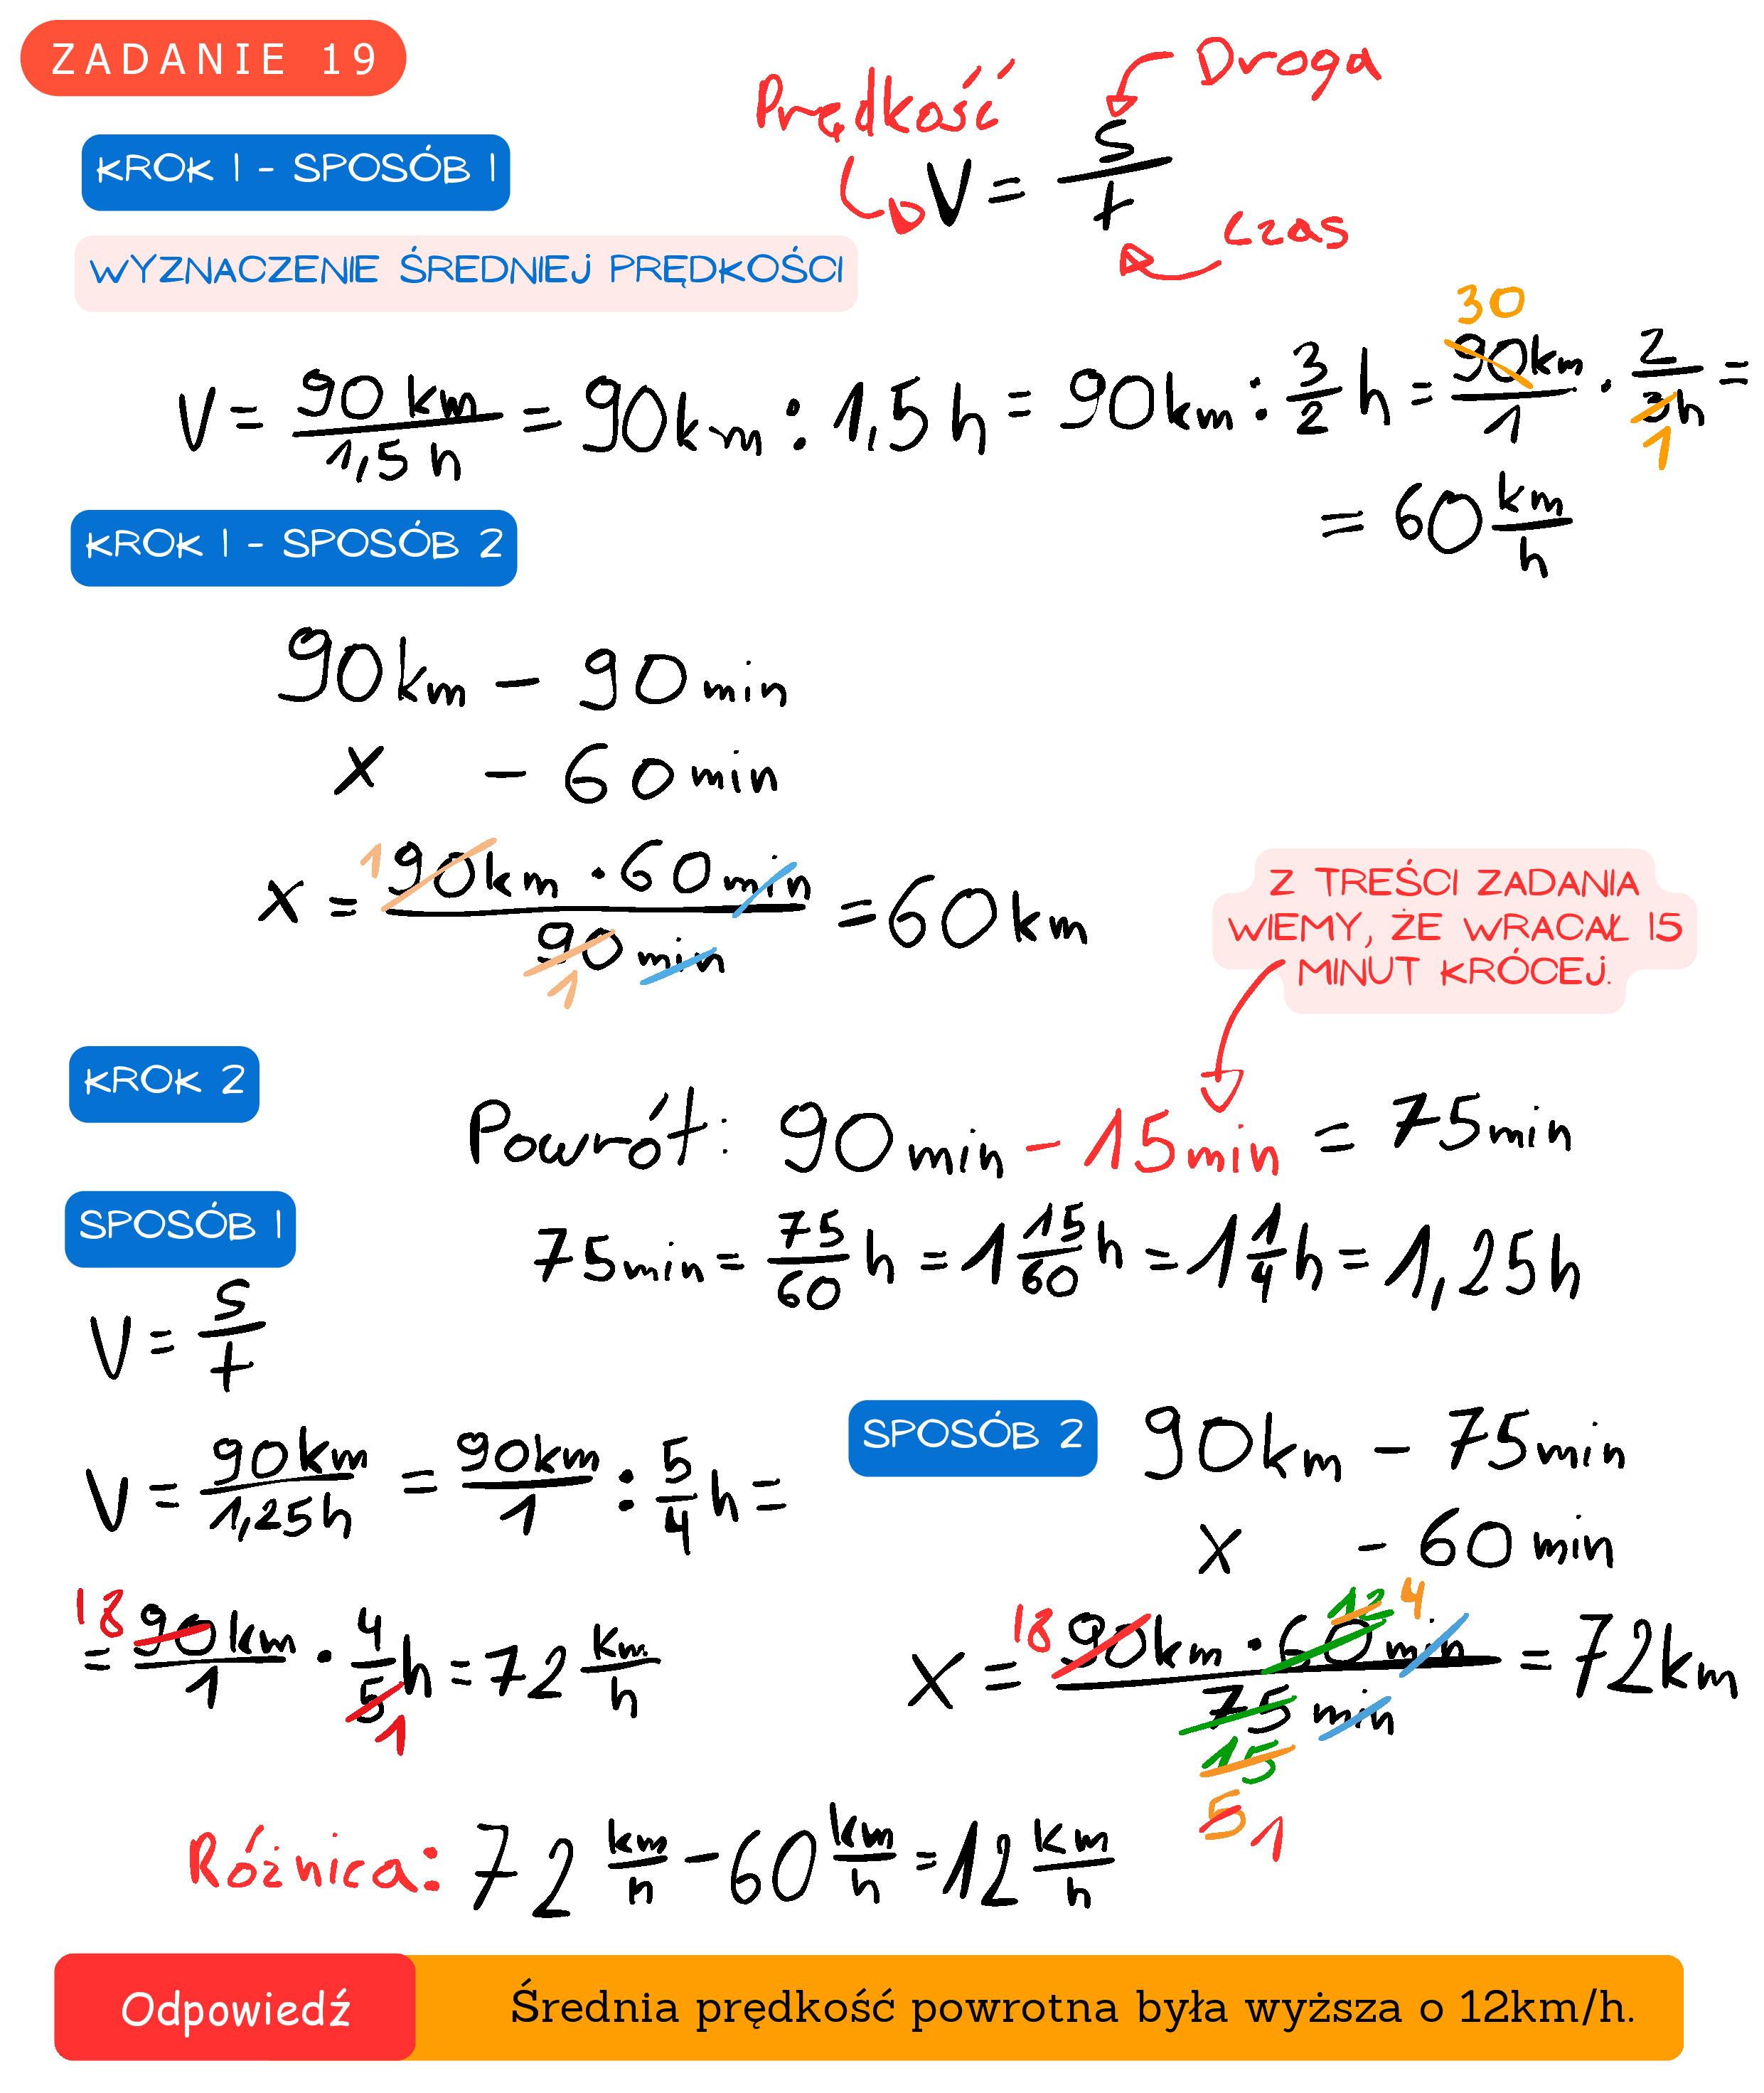 ZADANIE 19
Prędkość
Droga
V = s/t
czas
KROK 1 - SPOSÓB 1
WYZNACZENIE ŚREDNIEJ PRĘDKOŚCI
V = 90 km/1,5 h = 90km : 1,5 h = 90km : 3/2 h = 30 90km/1 · 2/3h 1 =
= 60 km/h
KROK 1 - SPOSÓB 2
90km - 90min
x - 60min
x = 1 90km · 60min / 90 min 1 = 60km
Z TREŚCI ZADANIA
WIEMY, ŻE WRACAŁ 15
MINUT KRÓCEJ.
KROK 2
Powrót: 90min - 15min = 75min
75min = 75/60 h = 1 15/60 h = 1 1/4 h = 1,25h
SPOSÓB 1
V = s/t
V = 90km/1,25h = 90km/1 : 5/4 h =
= 18 90km/1 · 4/5 1 h = 72 km/h
SPOSÓB 2
90km - 75min
x - 60min
x = 18 90km · 60 12 4 min / 75 15 5 1 min = 72km
Różnica: 72 km/h - 60 km/h = 12 km/h
Odpowiedź
Średnia prędkość powrotna była wyższa o 12km/h.